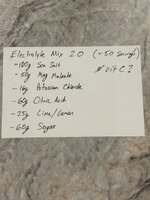 Electrolyte Mix 2.0 (~50 Servings)
-100g Sea Salt
-50g Mag Malate
-16g Potassium Chloride
-60g Citric Acid
-25g Lime/Lemon
-60g Sugar
Vit C?